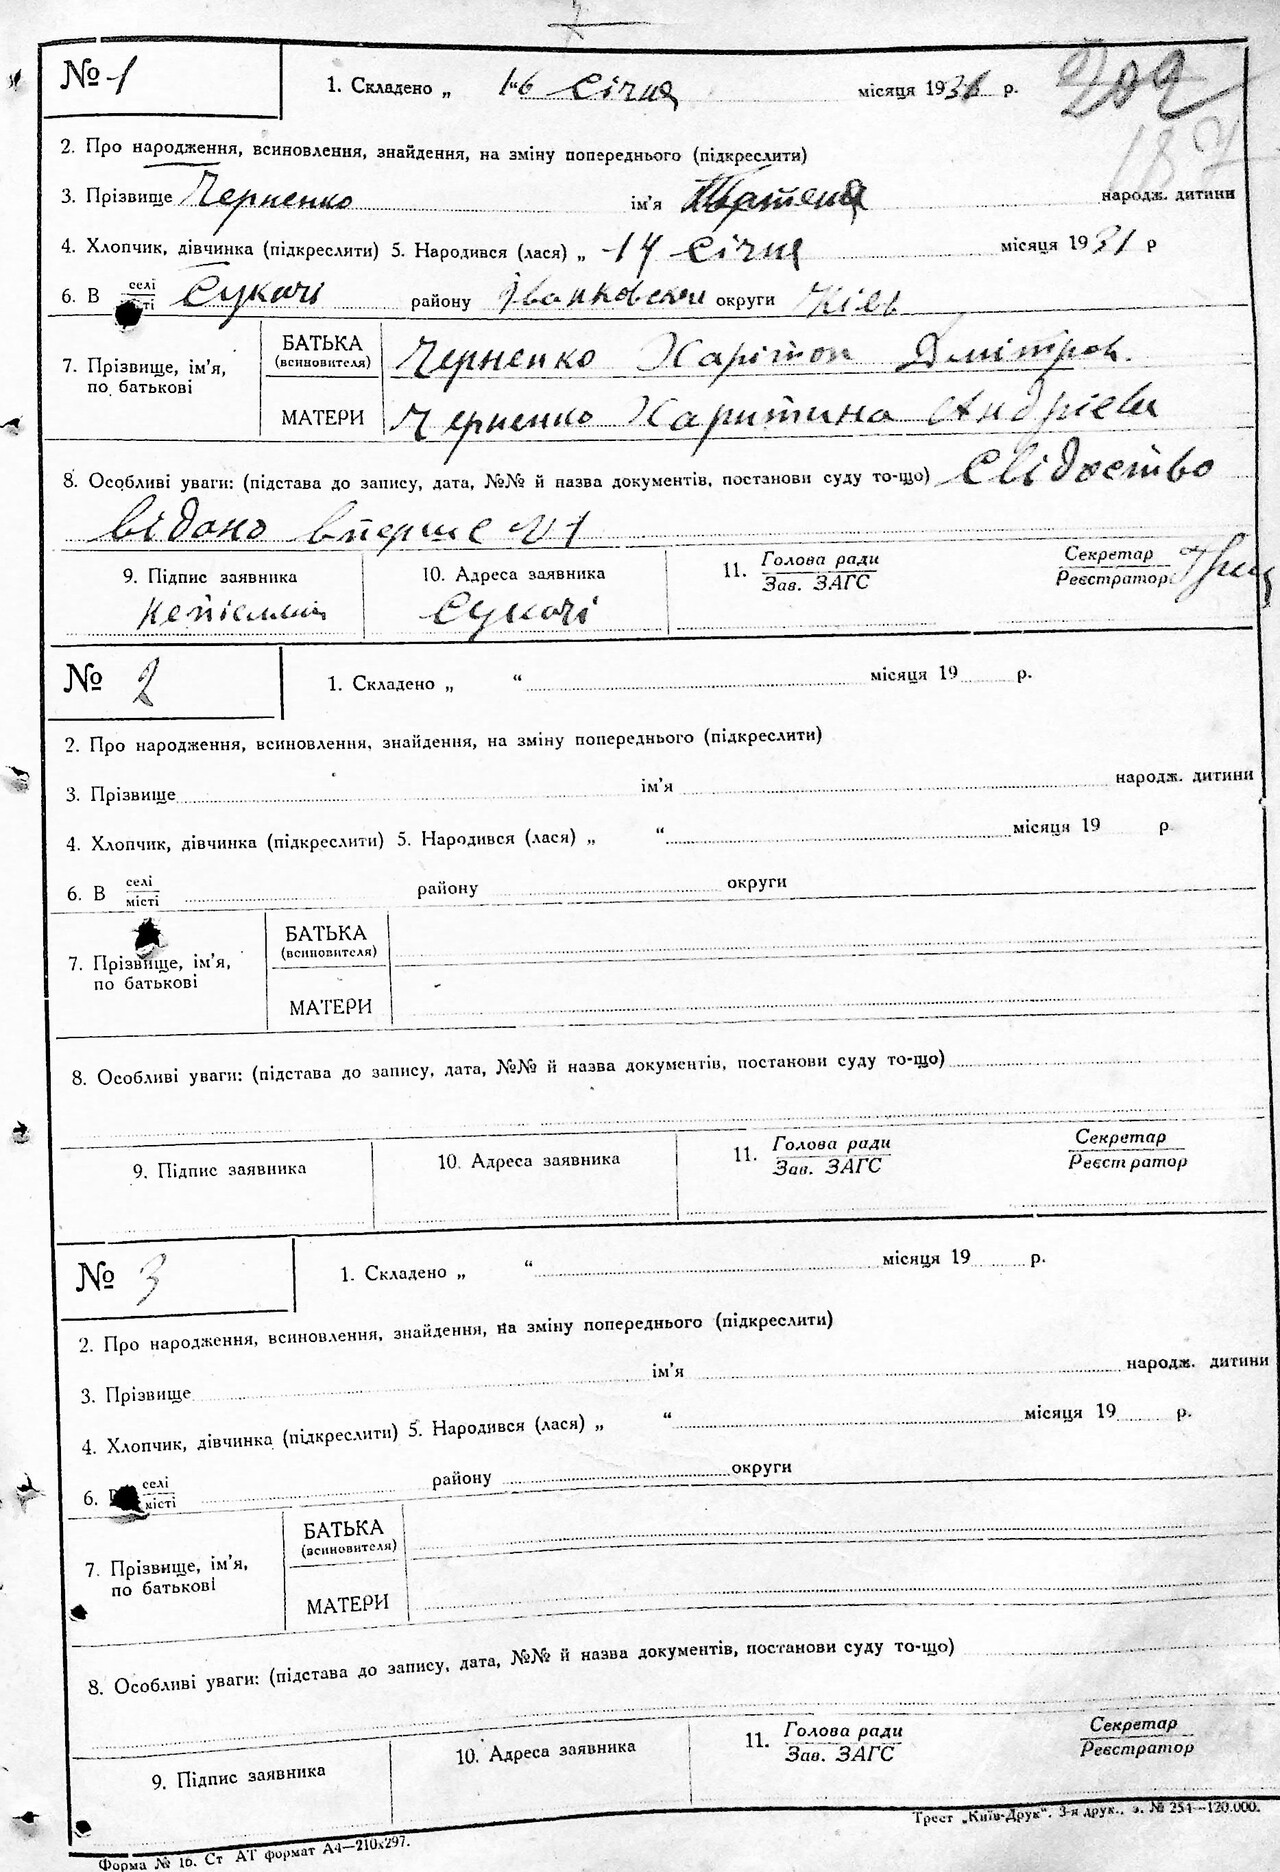 № 1
1. Складено „ 16 січня місяця 1931 р.
209
187
2. Про народження, всиновлення, знайдення, на зміну попереднього (підкреслити)
3. Прізвище Черненко ім'я Татяна народж. дитини
4. Хлопчик, дівчинка (підкреслити) 5. Народився (лася) „ 14 січня місяця 1931 р
6. В селі Сукачі району Іванковскои округи Київ
7. Прізвище, ім'я, по батькові
БАТЬКА (всиновителя) Черненко Харітон Дмітров.
МАТЕРИ Черненко Харитина Андріева
8. Особливі уваги: (підстава до запису, дата, №№ й назва документів, постанови суду то-що) Свідоство
відано вперше №1
9. Підпис заявника 10. Адреса заявника 11. Голова ради Секретар
Зав. ЗАГС Реєстратор
Сукачі
№ 2
1. Складено „ “ місяця 19 р.
2. Про народження, всиновлення, знайдення, на зміну попереднього (підкреслити)
3. Прізвище ім'я народж. дитини
4. Хлопчик, дівчинка (підкреслити) 5. Народився (лася) „ “ місяця 19 р
6. В селі місті району округи
7. Прізвище, ім'я, по батькові
БАТЬКА (всиновителя)
МАТЕРИ
8. Особливі уваги: (підстава до запису, дата, №№ й назва документів, постанови суду то-що)
9. Підпис заявника 10. Адреса заявника 11. Голова ради Секретар
Зав. ЗАГС Реєстратор
№ 3
1. Складено „ “ місяця 19 р.
2. Про народження, всиновлення, знайдення, на зміну попереднього (підкреслити)
3. Прізвище ім'я народж. дитини
4. Хлопчик, дівчинка (підкреслити) 5. Народився (лася) „ “ місяця 19 р.
6. В селі місті району округи
7. Прізвище, ім'я, по батькові
БАТЬКА (всиновителя)
МАТЕРИ
8. Особливі уваги: (підстава до запису, дата, №№ й назва документів, постанови суду то-що)
9. Підпис заявника 10. Адреса заявника 11. Голова ради Секретар
Зав. ЗАГС Реєстратор
Форма № 16. Ст АТ формат А4—210x297.
Трест „Київ-Друк“. 3-я друк., з. № 254—120.000.